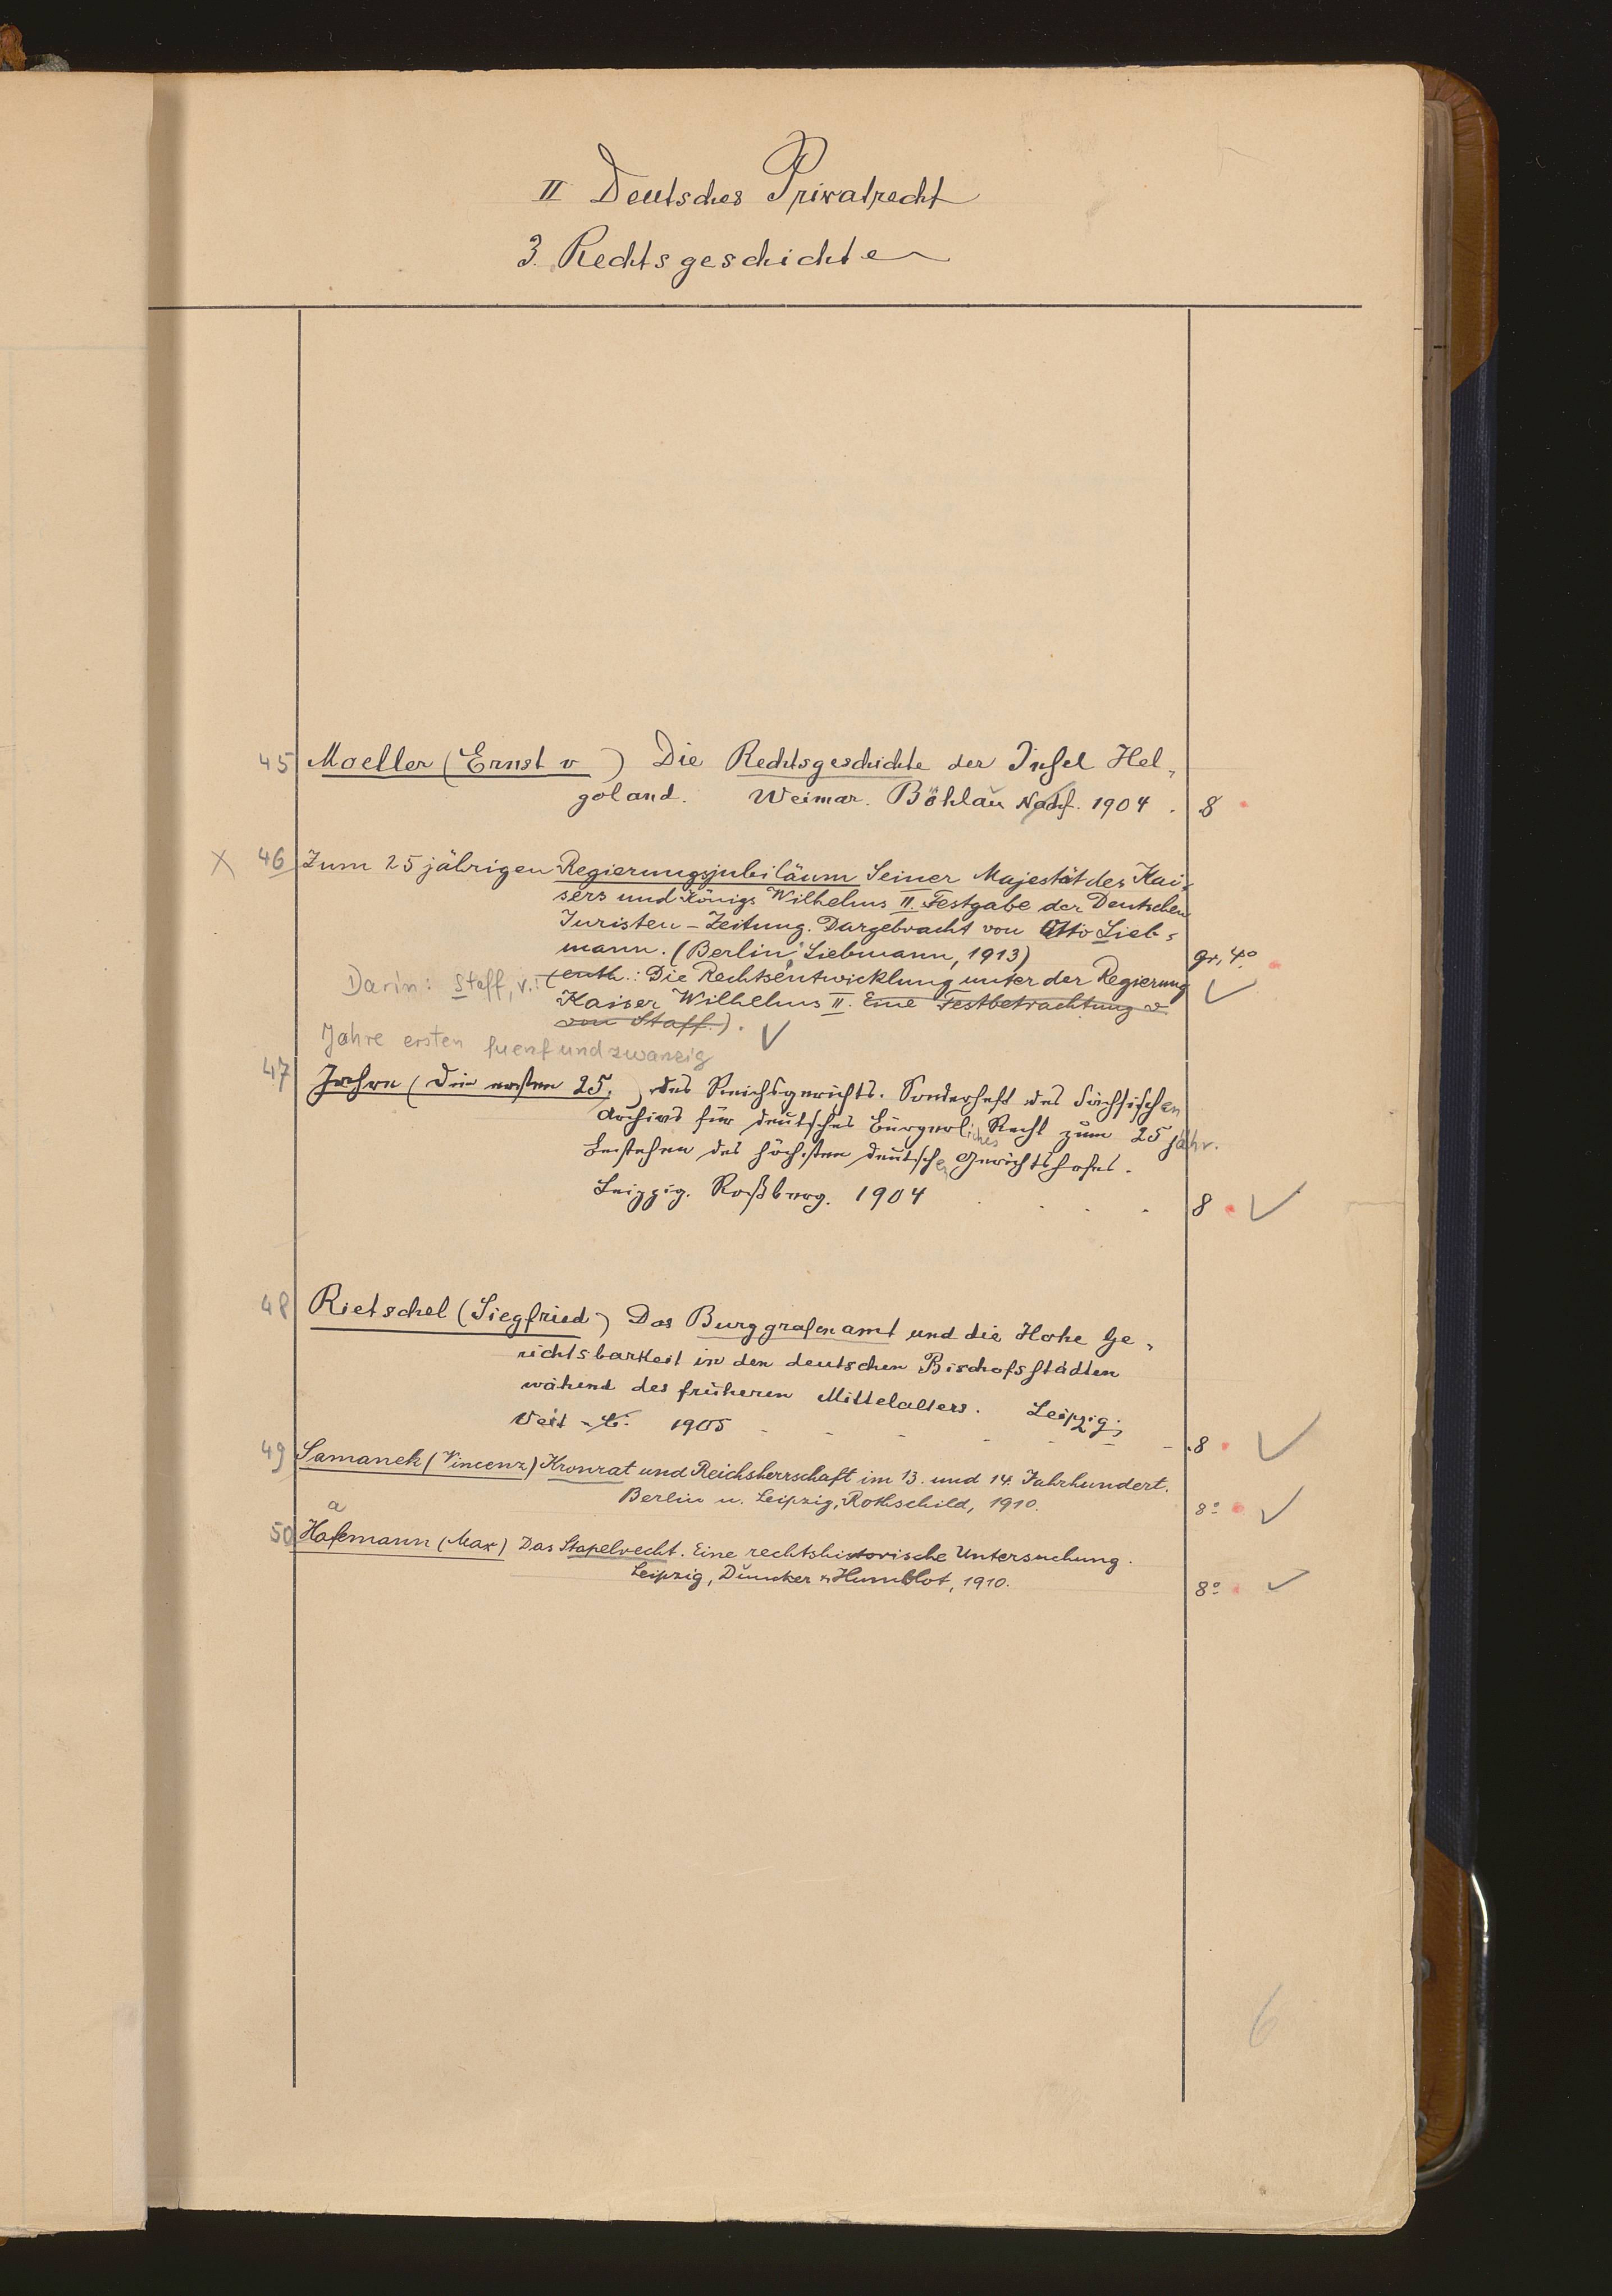 II Deutsches Privatrecht
3. Rechtsgeschichte
45 Moeller (Ernst v ) Die Rechtsgeschichte der Insel Hel-
goland. Weimar. Böhlau Nachf. 1904 . 8
X 46 Zum 25 jährigen Regierungsjubiläum Seiner Majestät des Kai-
sers und Königs Wilhelms II. Festgabe der Deutschen
Juristen-Zeitung. Dargebracht von Otto Lieb-
mann. (Berlin: Liebmann, 1913) gr. 4°
Darin: Staff, v.: (enth.: Die Rechtsentwicklung unter der Regierung
Kaiser Wilhelms II. Eine Festbetrachtung v.
von Staff.).
Jahre ersten fuenfundzwanzig
47 Jahre (Die ersten 25. ) des Reichsgerichts. Sonderheft des Sächsischen
Archivs für deutsches bürgerliches Recht zum 25 jähr.
Bestehen des höchsten deutschen Gerichtshofes.
Leipzig. Roßberg. 1904 . . . 8
48 Rietschel (Siegfried) Das Burggrafenamt und die Hohe Ge-
richtsbarkeit in den deutschen Bischofsstädten
wähend des früheren Mittelalters. Leipzig;
Veit 1905 8
49 Samanek (Vincenz) Kronrat und Reichsherrschaft im 13. und 14. Jahrhundert.
Berlin u. Leipzig, Rothschild, 1910. 8°
a
50 Hafemann (Max) Das Stapelrecht. Eine rechtshistorische Untersuchung.
Leipzig, Duncker & Humblot, 1910. 8°
6